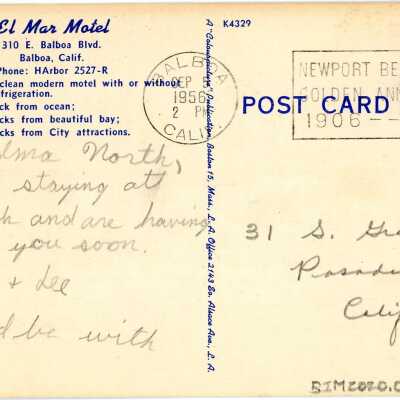 El Mar Motel
310 E. Balboa Blvd.
Balboa, Calif.
Phone: HArbor 2527-R
clean modern motel with or without
frigeration.
ck from ocean;
cks from beautiful bay;
cks from City attractions.
lma North,
staying at
h and are having
you soon.
+ Lee
d be with
A "Colourpicture" Publication, Boston 15, Mass., L. A. Office 2143 So. Alsace Ave., L. A.
K4329
BALBOA
SEP
1956
2 PM
CALIF.
NEWPORT BE
GOLDEN ANN
1906 -
POST CARD
31 S. Gra
Pasad
Calif